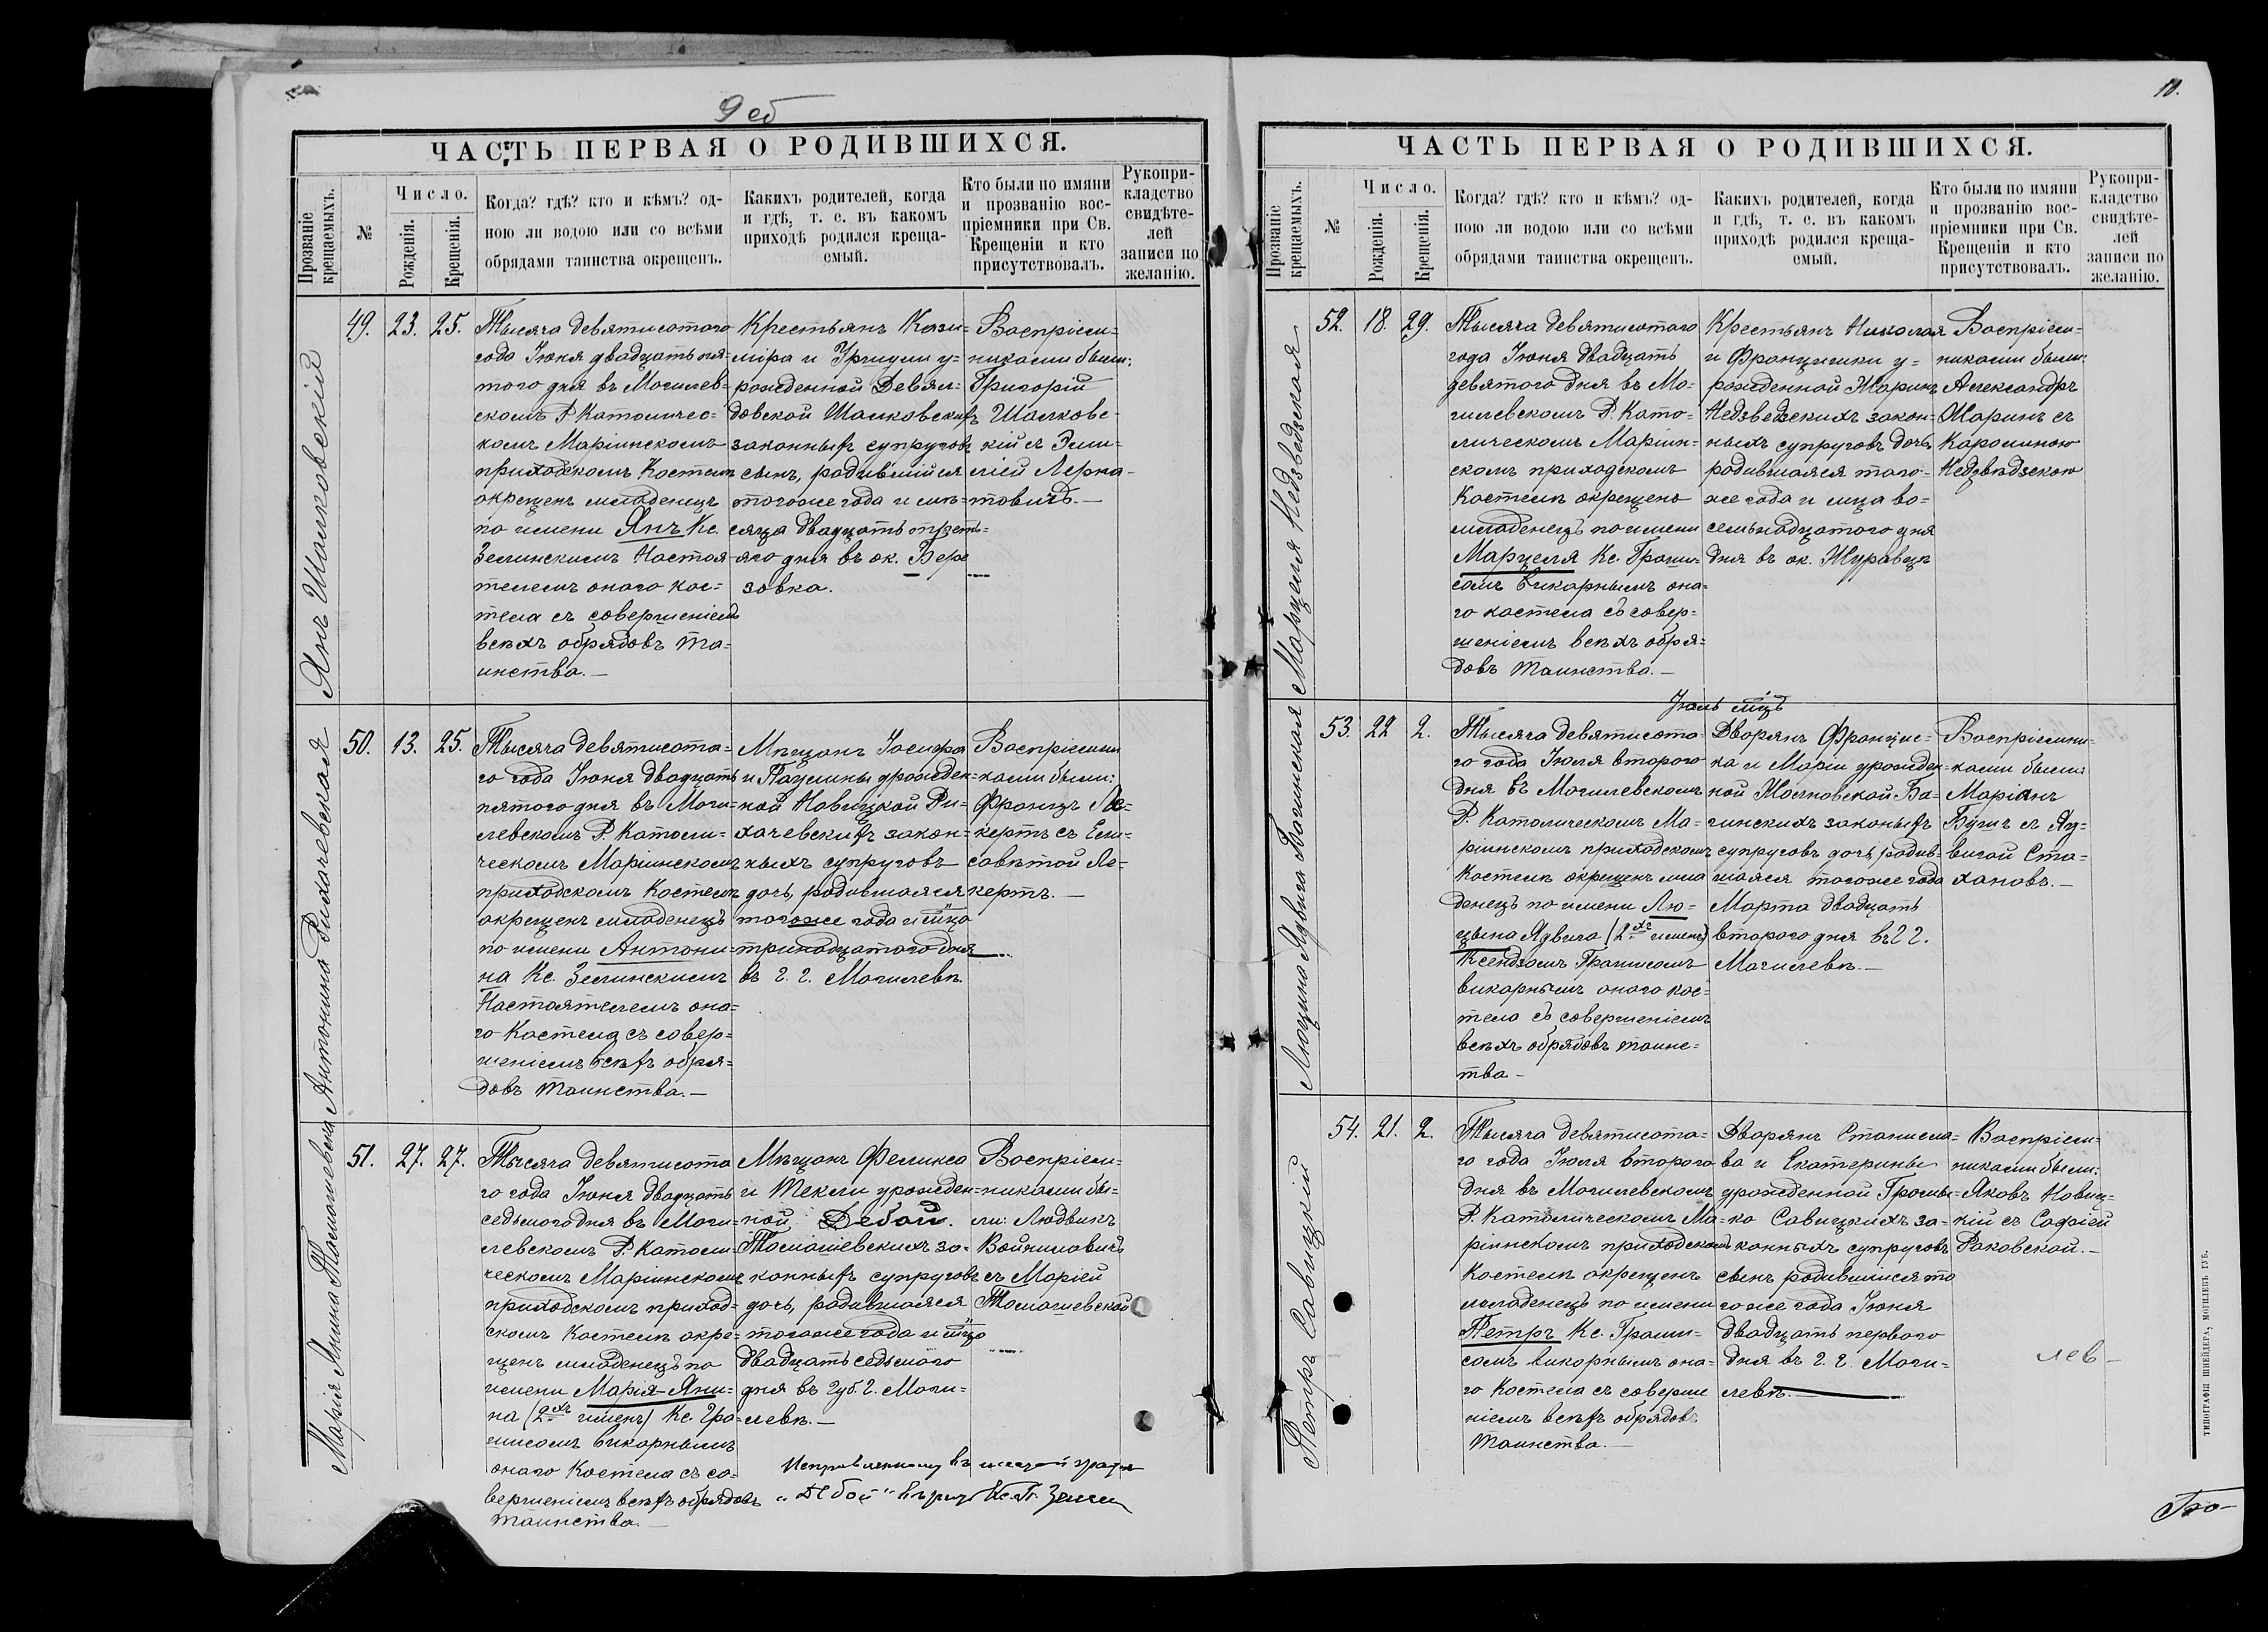 9 об
ЧАСТЬ ПЕРВАЯ О РОДИВШИХСЯ.
Прозваніе крещаемыхъ.
№
Число.
Рожденія.
Крещенія.
Когда? гдѣ? кто и кѣмъ? од-
ною ли водою или со всѣми
обрядами таинства окрещенъ.
Какихъ родителей, когда
и гдѣ, т. е. въ какомъ
приходѣ родился креща-
емый.
Кто были по имяни
и прозванію вос-
пріемники при Св.
Крещеніи и кто
присутствовалъ.
Рукопри-
кладство
свидѣте-
лей
записи по
желанію.
Янъ Шалковскій
49. 23. 25.
Тысяча девятисотаго
года Іюня двадцать пя-
таго дня въ Могилев-
скомъ Р. Католичес-
комъ Маріинскомъ
приходскомъ Костелѣ
окрещенъ младенецъ
по имени Янъ Кс.
Зелинскимъ Настоя-
телемъ онаго кос-
тела съ совершеніемъ
всѣхъ обрядовъ та-
инства.—
Крестьянъ Кази-
міра и Уршули у-
рожденной Девял-
довской Шалковскихъ
законныхъ супруговъ
сынъ, родившійся
тогоже года и мѣ-
сяца двадцать треть-
яго дня въ ок. Бере
зовка.
Воспріем-
никами были:
Григорій
Шалковс-
кій съ Эми-
ліей Лерка-
товичъ.—
Антонина Рихачевская
50. 13. 25.
Тысяча девятисота-
го года Іюня двадцать
пятого дня въ Моги-
левскомъ Р. Католи-
ческомъ Маріинскомъ
приходскомъ Костелѣ
окрещенъ младенецъ
по имени Антони-
на Кс. Зелинскимъ
Настоятелемъ она-
го Костела съ совер-
шеніемъ всѣхъ обря-
довъ таинства.—
Мѣщанъ Іосифа
и Паулины урожден-
ной Новицкой Ри-
хачевскихъ закон-
ныхъ супруговъ
дочь, родившаяся
тогоже года и мца
тринадцатого дня
въ г. г. Могилевѣ.
Воспріемни
ками были:
Францъ Ле-
кертъ съ Ели-
саветой Ле-
кертъ.—
Марія Янина Томашевска
51. 27. 27.
Тысяча девятисота
го года Іюня двадцать
седьмого дня въ Моги-
левскомъ Р. Католи-
ческомъ Маріинскомъ
приходскомъ приход-
скомъ Костелѣ окре-
щенъ младенецъ по
имени Марія-Яни-
на (2хъ именъ) Кс. Гра-
шисомъ викарнымъ
онаго Костела съ со-
вершеніемъ всѣхъ обрядовъ
таинства.—
Мѣщанъ Феликса
и Текли урожден-
ной Дебой.
Томашевскихъ за-
конныхъ супруговъ
дочь, родившаяся
тогоже года и мца
двадцать седьмого
дня въ губ. г. Моги-
левѣ.—
Воспріем-
никами бы-
ли: Людвикъ
Войниловичъ
съ Маріей
Томашевской
"Дебой"
10.
ЧАСТЬ ПЕРВАЯ О РОДИВШИХСЯ.
Прозваніе крещаемыхъ.
№
Число.
Рожденія.
Крещенія.
Когда? гдѣ? кто и кѣмъ? од-
ною ли водою или со всѣми
обрядами таинства окрещенъ.
Какихъ родителей, когда
и гдѣ, т. е. въ какомъ
приходѣ родился креща-
емый.
Кто были по имяни
и прозванію вос-
пріемники при Св.
Крещеніи и кто
присутствовалъ.
Рукопри-
кладство
свидѣте-
лей
записи по
желанію.
Марцеля Недзведзская
52. 18. 29.
Тысяча девятисотаго
года Іюня двадцать
девятого дня въ Мо-
гилевскомъ Р. Като-
лическомъ Маріин-
скомъ приходскомъ
Костелѣ окрещенъ
младенецъ по имени
Марцеля Кс. Граши-
сомъ викарнымъ она-
го костела съ совер-
шеніемъ всѣхъ обря-
довъ таинства.—
Крестьянъ Николая
и Францишки у-
рожденной Жаринъ
Недзведзскихъ закон-
ныхъ супруговъ дочь
родившаяся того-
же года и мца во-
семьнадцатого дня
дня въ ок. Журавецъ
Воспріем-
никами были:
Александръ
Жаринъ съ
Каролиною
Недзвядзскою
Іюль мцъ
Люцына Ядвига Багинская
53. 22 2.
Тысяча девятисота-
го года Іюля второго
дня въ Могилевскомъ
Р. Католическомъ Ма-
ріинскомъ приходскомъ
Костелѣ окрещенъ мла
денецъ по имени Лю-
цына Ядвига (2хъ именъ)
Ксендзомъ Грашисомъ
викарнымъ онаго кос-
тела съ совершеніемъ
всѣхъ обрядовъ таинс-
тва—
Дворянъ Францис-
ка и Маріи урожден-
ной Малковской Ба-
гинскихъ законныхъ
супруговъ дочь, родив-
шаяся тогоже года
Марта двадцать
второго дня въ г г.
Могилевѣ.—
Воспріемни-
ками были:
Маріанъ
Буги съ Яд-
вигой Ста-
хановъ.—
Петръ Савицкій
54. 21. 2.
Тысяча девятисота-
го года Іюля второго
дня въ Могилевскомъ
Р. Католическомъ Ма-
ріинскомъ приходскомъ
Костелѣ окрещенъ
младенецъ по имени
Петръ Кс. Граши-
сомъ викарнымъ она-
го Костела съ соверше
ніемъ всѣхъ обрядовъ
таинства.—
Дворянъ Станисла-
ва и Екатерины
урожденной Громы-
ко Савицкихъ за-
конныхъ супруговъ
сынъ родившійся то
гоже года Іюня
двадцать первого
дня въ г. г. Моги-
левѣ.—
Воспріем-
никами были:
Яковъ Новиц-
кій съ Софіей
Раковской.—
лев—
ТИПОГРАФІЯ ШНЕЙДЕРА, МОГИЛЕВЪ ГУБ.